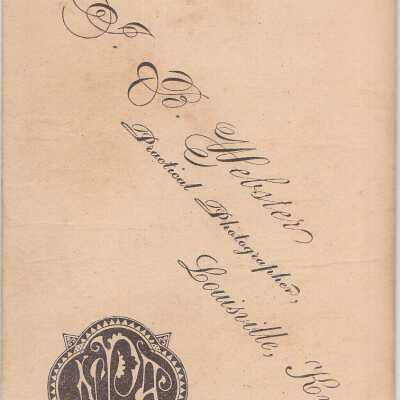 J. B. Webster
Practical Photographer,
Louisville, Ky
NPA